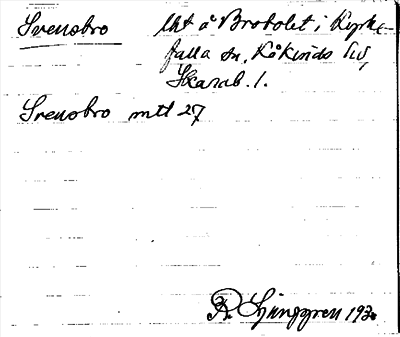 Svensbro lht å Brobolet i Kyrke-
falla sn, Kåkinds hd,
Skarab. l.
Svensbro mtl 27
R. Ljunggren 193